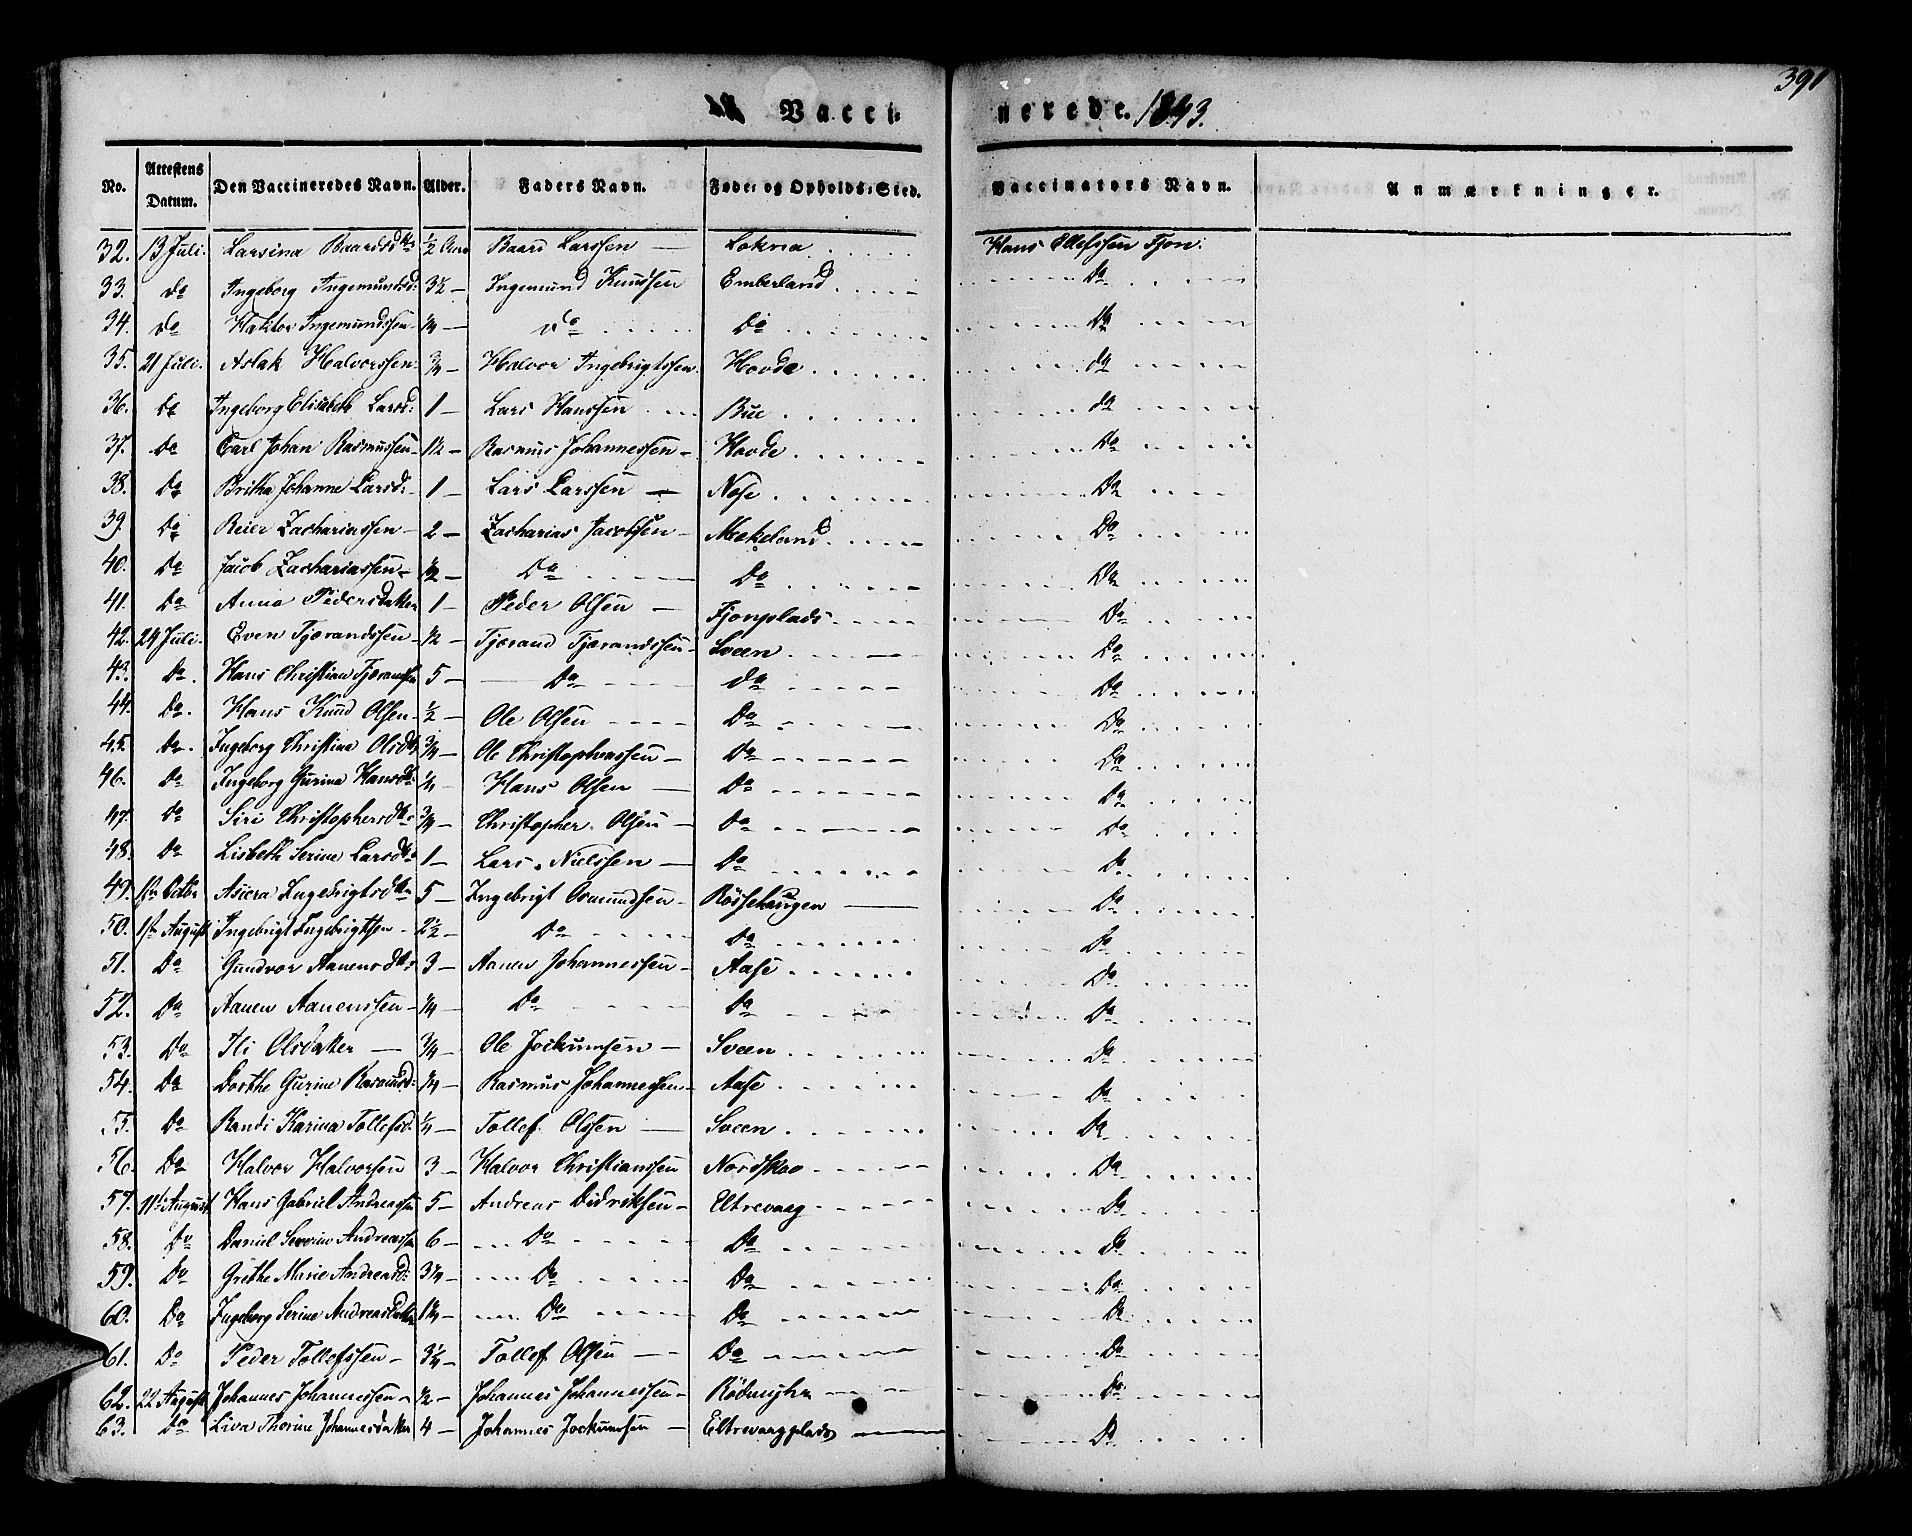 391
Vacci- nerede. 1843.
No. Attestens Datum. Den Vaccineredes Navn. Alder. Faders Navn. Føde- og Opholds-Sted. Vaccinators Navn. Anmærkninger.
32. 13 Juli. Larsina Baardsd 1/2 Baard Larssen — Lokna Hans Ellefssen Fjon.
33. Do Ingeborg Ingemundsd: 3 1/2 — Ingemund Knudsen Emberland Do
34. Do Ingemundssen 1/4 — Do Do Do
35. 21 Juli. Aslak Halvorssen 3/4 — Halvor Ingebrigtssen Hovde do
36. Do Ingeborg Elisabeth Larsd: 1 — Lars Hanssen Bue do
37. Do Carl Johan Rasmussen 1 1/2 — Rasmus Johannessen — Hovde Do
38. Do Britha Johanne Larsd: 1 — Lars Larssen — Nose Do
39. Do Reier Zachariassen — 2 — Zacharias Jacobsen — Mækeland Do
40. Do Jacob Zachariassen — 1/2 — Do Do Do
41. Do Anna Pedersdatter 1 — Peder Olsen — Fjonplads Do
42. 24 Juli. Even Tjørandssen — 1/2 — Tjørand Tjørandssen — Sveen Do
43. Do. Hans Christian 5 — Do do Do
44. Do. Hans Knud Olsen — 1/2 — Ole Olsen Do Do
45. Do. Ingeborg Christina Olsd 3/4 — Ole Christophersen — Do Do
46. Do Ingeborg Gurina Hansd 1/4 — Hans Olsen — Do Do
47. Do Siri Christophersd 3/4 — Christopher Olsen — Do Do
48. Do Lisbeth Serine Larsd 1 — Lars Nielssen — Do Do
49. Ingebrigtsd 5 — Ingebrigt Osmundsen — Røssehaugen — Do
50. 1ste August Ingebrigt Ingebrigtsen — 2 1/2 — Do Do Do
51. Do Gundvor Aanensd 3 — Aanen Johannessen — Aase Do
52. Do Aanen Aanenssen — 1/4 — Do Do Do
53. Do Ili Olsdatter — 3/4 — Ole Jockumsen — Sveen Do
54. Do Dorthe Gurine Rasmusd: 1/4 — Rasmus Johannessen — Aase Do
55. Do Randi Karina Tollefsd. 1/4 — Tollef Olssen — Sveen Do
56. Do Halvor Halvorsen 3 — Halvor Christianssen Nordskov Do
57. 11te August Hans Gabriel Andreassen 5 — Andreas Didriksen — Eltrevaag Do
58. Do Daniel Severin Andreassen 6 — Do Do Do
59. Do Grethe Marie Andreasd: 3 1/4 — Do Do Do
60. Do Ingeborg Serine Andreasdatter 1 1/4 — Do Do Do
61. Do Peder Tollefssen — 3 1/4 — Tollef Olsen — Do Do
62. 22 August Johannes Johannessen — 1/2 — Johannes Johannessen — Do
63. Do Liva Thorine Johannesdatter 4 — Johannes Jockumssen — Eltrevaagplads — Do